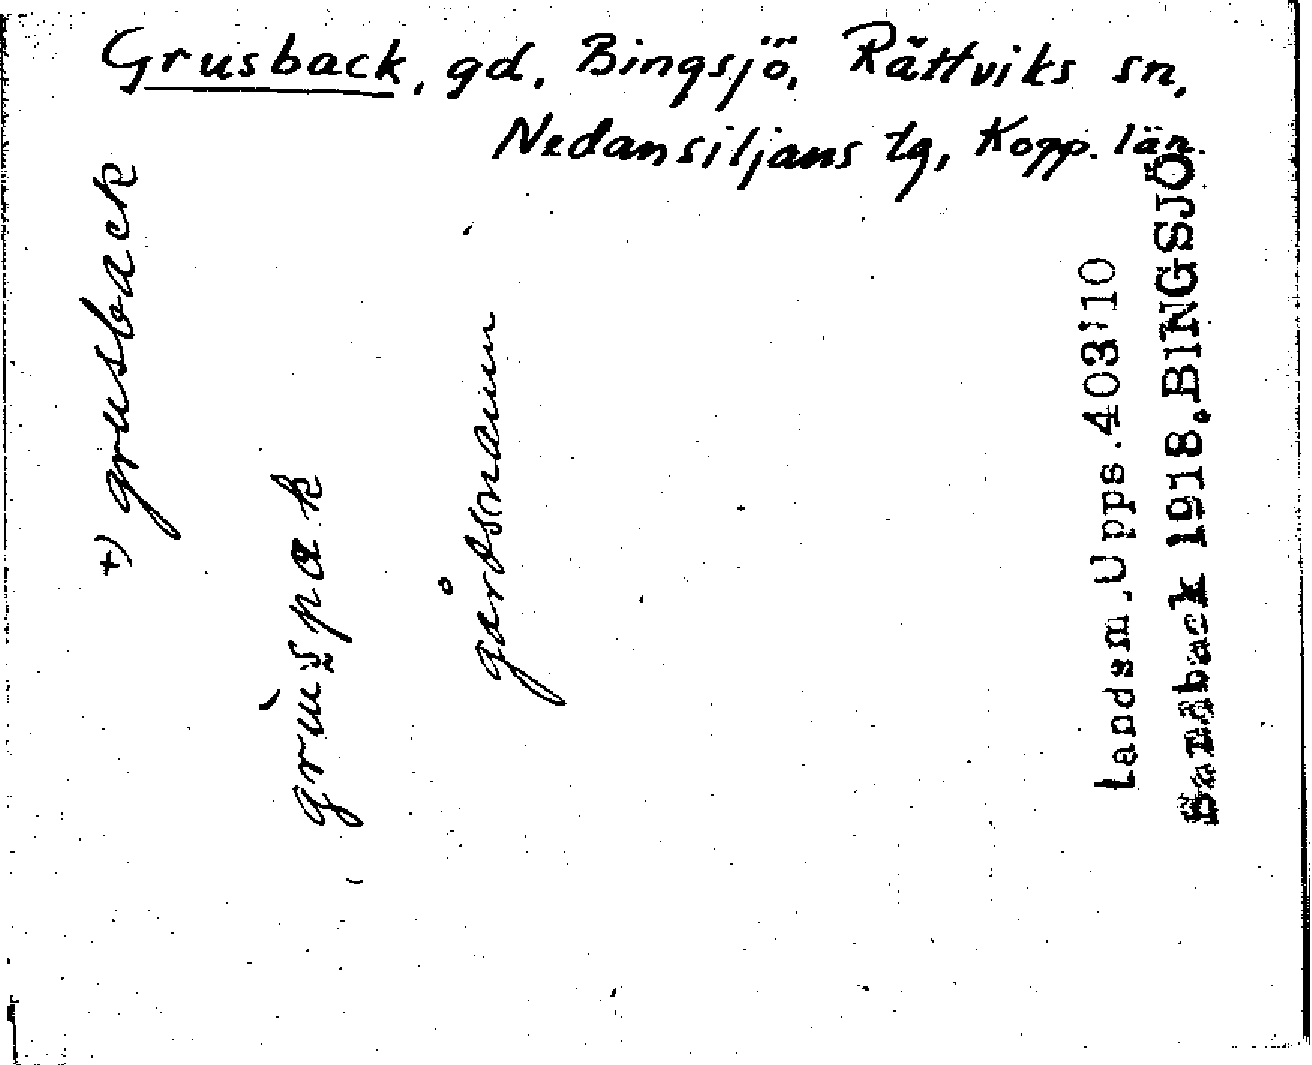 Grusback, gd. Bingsjö, Rättviks sn,
Nedansiljans tg, Kopp. län.
+) grusback
grùs̱pak
gårdsnamn
Landsm.Upps.403:10
Sandback 1918.BINGSJÖ